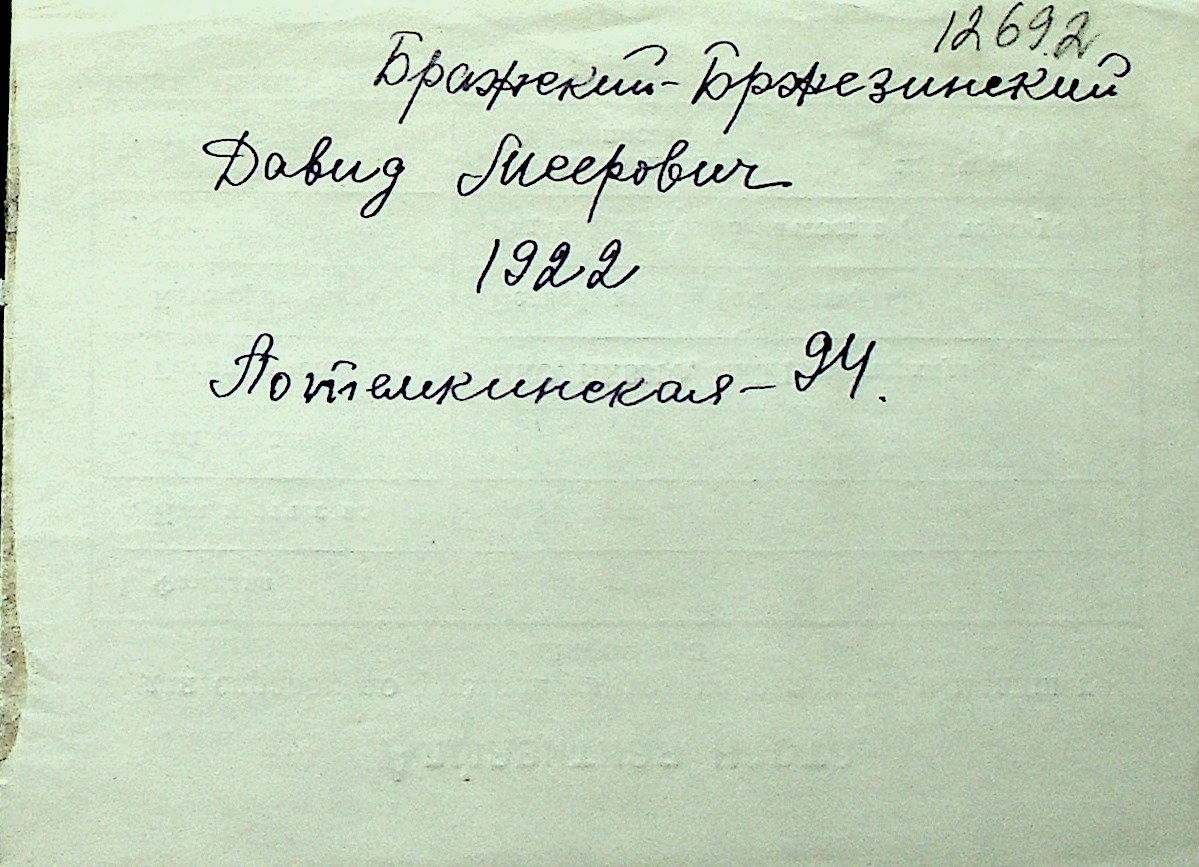 12692
Бражский-Бржезинский
Давид Меерович
1922
Потемкинская – 94.